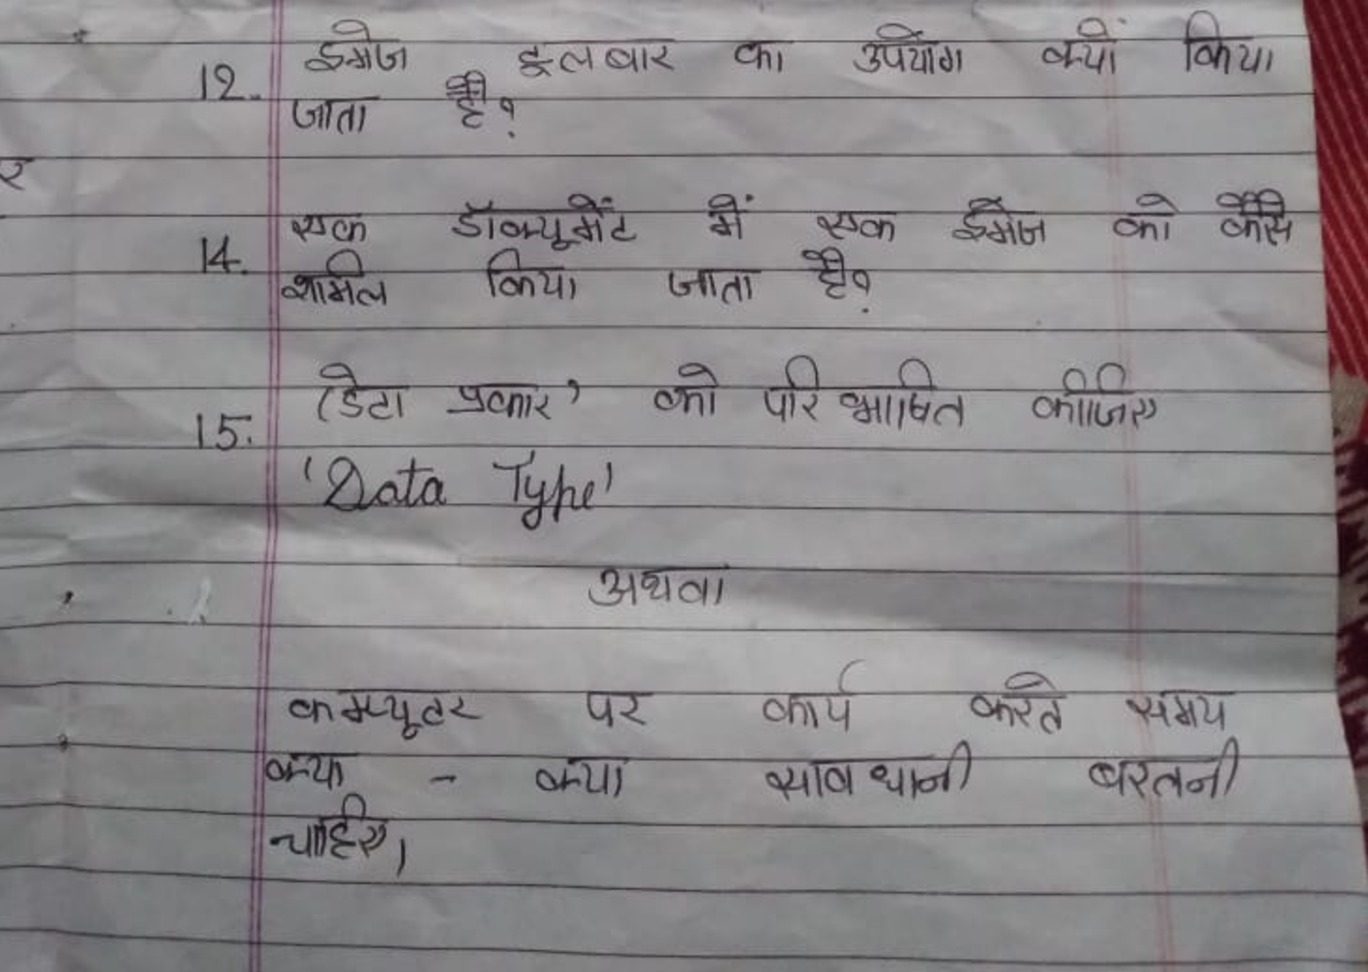 12. इमेज टूलबार का उपयोग क्यों किया
जाता है?
र
14. एक डॉक्यूमेंट में एक ईमेज को कैसे
शामिल किया जाता है?
15. 'डेटा प्रकार' को परिभाषित कीजिए
'Data Type'
अथवा
कम्प्यूटर पर कार्य करते समय
क्या - क्या सावधानी बरतनी
चाहिए।